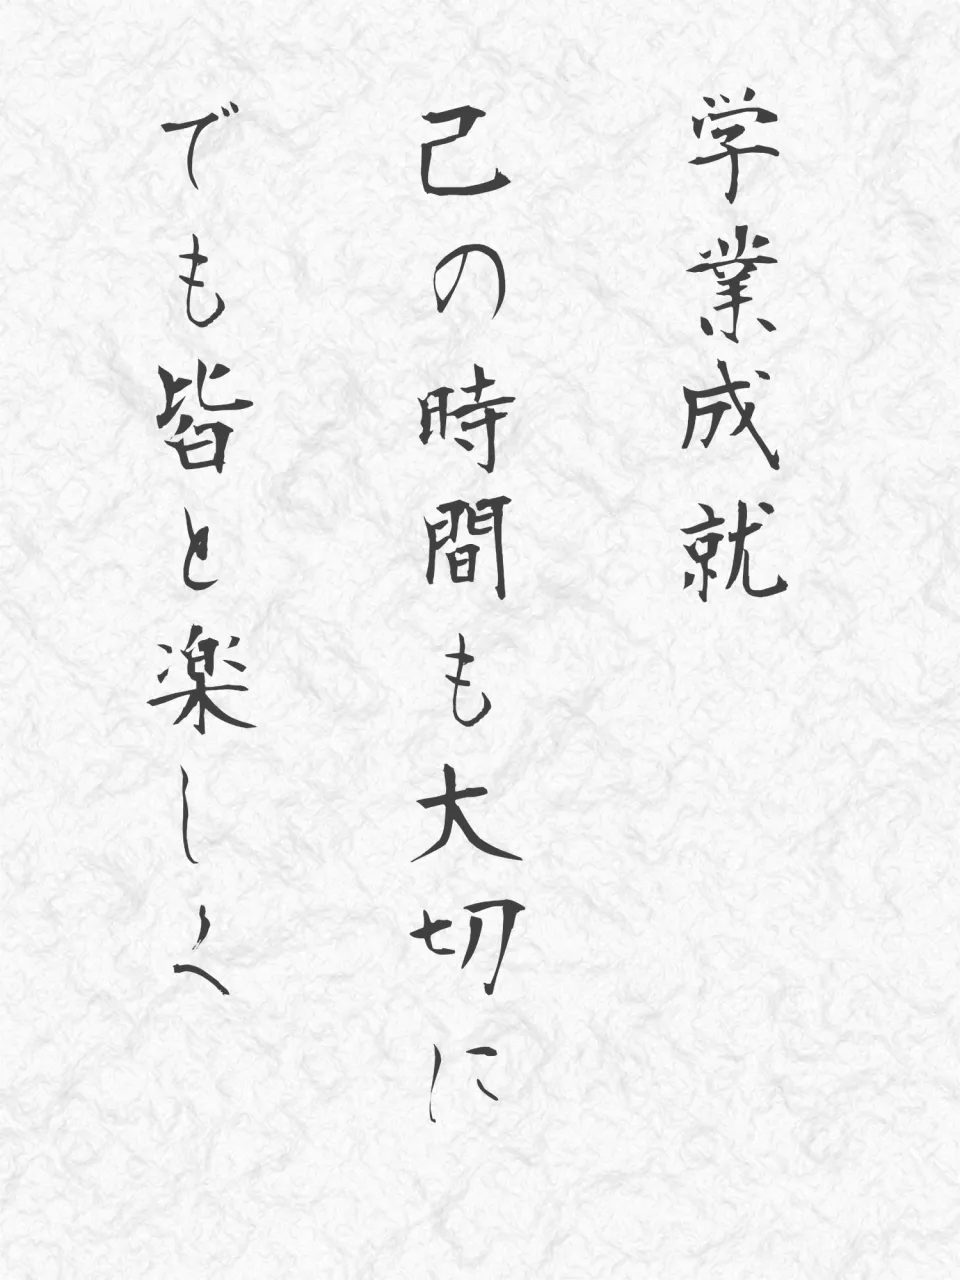 学業成就
己の時間も大切に
でも皆と楽しく